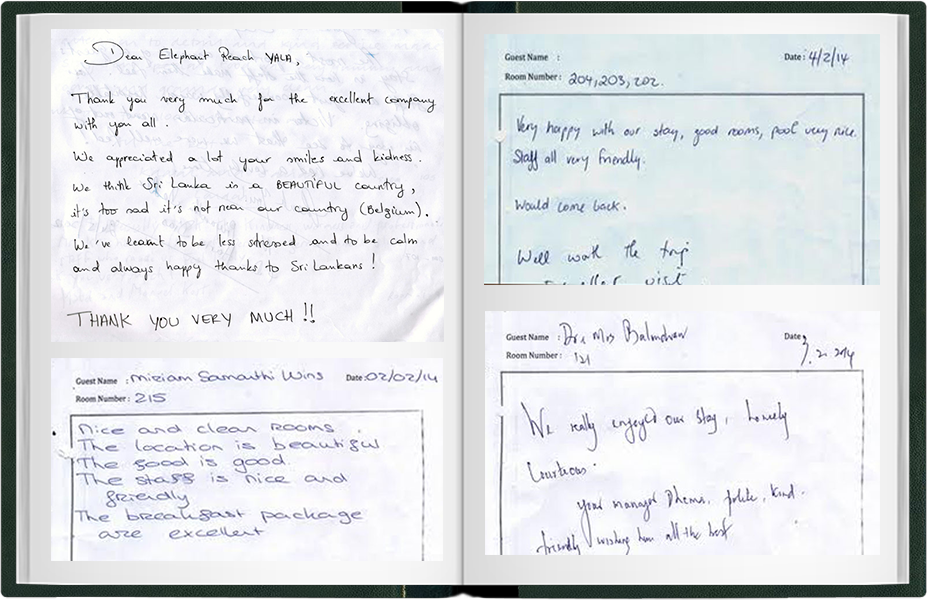 Dear Elephant Reach YALA,
Thank you very much for the excellent company
with you all.
We appreciated a lot your smiles and kidness.
We think Sri Lanka is a BEAUTIFUL country,
it's too sad it's not near our country (Belgium).
We've learnt to be less stressed and to be calm
and always happy thanks to Sri Lankans!
THANK YOU VERY MUCH!!
Guest Name : Miriam Samanthi Wins Date: 02/02/14
Room Number: 215
Nice and clean rooms.
The location is beautiful
The food is good.
The staff is nice and
friendly
The breakfast package
are excellent
Guest Name : Date: 4/2/14
Room Number: 204, 203, 202.
Very happy with our stay, good rooms, pool very nice.
Staff all very friendly.
Would come back.
Well worth the trip
visit
Guest Name : Dr & Mrs Date
Room Number: 121
We really enjoyed our stay,
Courteous.
your manager polite, kind.
friendly wishing him all the best